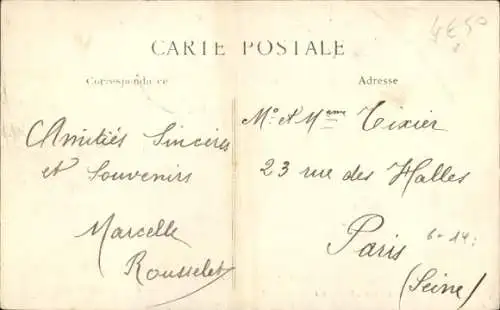 4€50
CARTE POSTALE
Correspondance
Adresse
Amitiés Sincères
et Souvenirs
Marcelle
Rousselet
Mr et Mme Tixier
23 rue des Halles
Paris
6-14
(Seine)